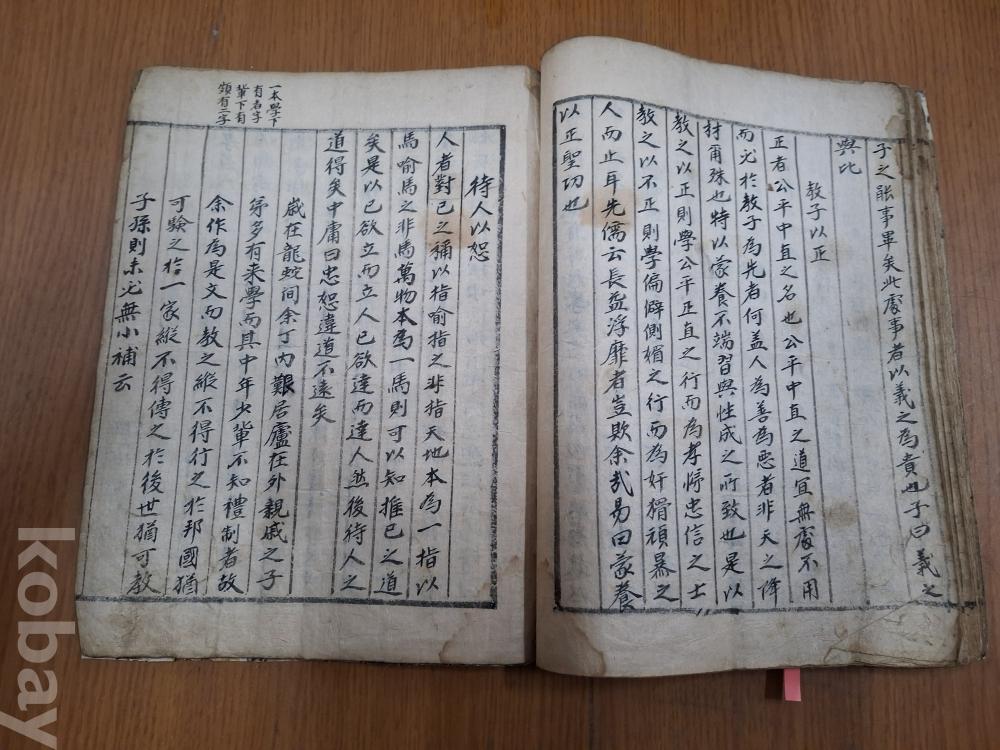 子之能事畢矣此處事者以義之為貴也子曰義之
與比
教子以正
正者公平中直之名也公平中直之道宜無處不用
而必於教子為先者何盖人為善為惡者非天之降
材爾殊也特以蒙養不端習與性成之所致也是以
教之以正則學公平正直之行而為孝悌忠信之士
教之以不正則學偏僻側媚之行而為奸猾頑暴之
人而止耳先儒云長益浮靡者豈欺余哉易曰蒙養
以正聖功也
一本學下
有名字
輩下有
領有二字
待人以恕
人者對已之稱以指喻指之非指天地本為一指以
馬喻馬之非馬萬物本為一馬則可以知推已之道
矣是以已欲立而立人已欲達而達人然後待人之
道得矣中庸曰忠恕違道不遠矣
歲在龍蛇间余丁内艱居廬在外親戚之子
弟多有来學而其中年少輩不知禮制者故
余作為是文而教之縱不得行之於邦國猶
可驗之於一家縱不得傳之於後世猶可教
子孫則未必無小補云
kobay